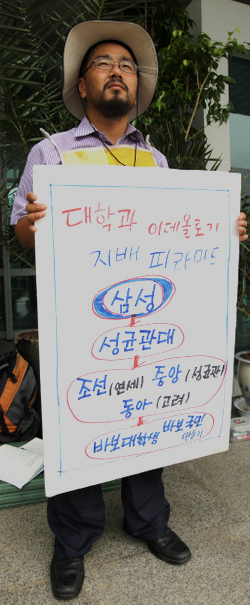 대학과 이데올로기
지배 피라미드
삼성
성균관대
조선(연세) 중앙(성균관)
동아(고려)
바보대학생 바보국민
만들기